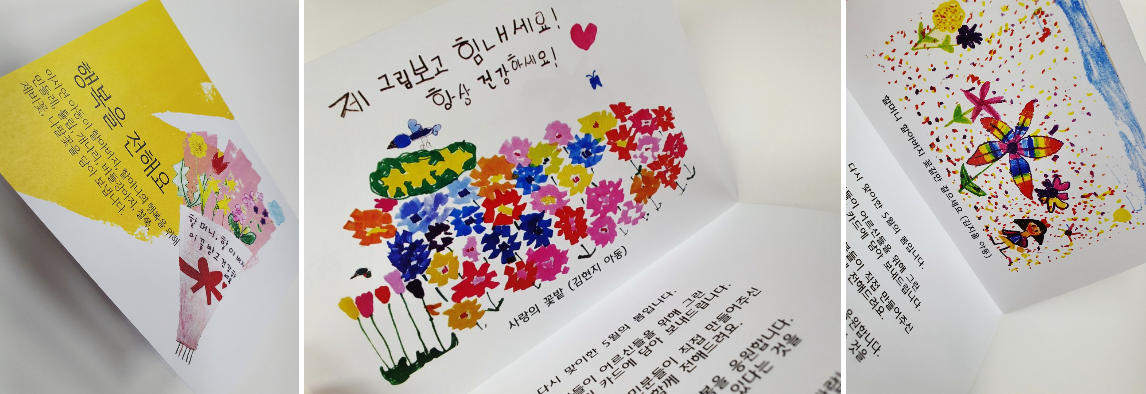 행복을 전해요
이시연 아동이 할아버지, 할머니의 행복을 위해
민들레, 튤립, 개나리, 버들강아지, 철쭉,
제비꽃, 나팔꽃을 담아 보냅니다.
할머니, 할아버지
제 그림보고 힘내세요!
항상 건강하세요!
사랑의 꽃밭 (김현지 아동)
다시 맞이한 5월의 봄입니다.
들이 어르신들을 위해 그린
카드에 담아 보내드립니다.
민분들이 직접 만들어주신
함께 전해드려요.
복을 응원합니다.
있다는 것을
할머니 할아버지 꽃길만 걸으세요 (김지율 아동)
다시 맞이한 5월의 봄입니다.
들이 어르신들을 위해 그린
카드에 담아 보내드립니다.
분들이 직접 만들어주신
전해드려요.
응원합니다.
것을